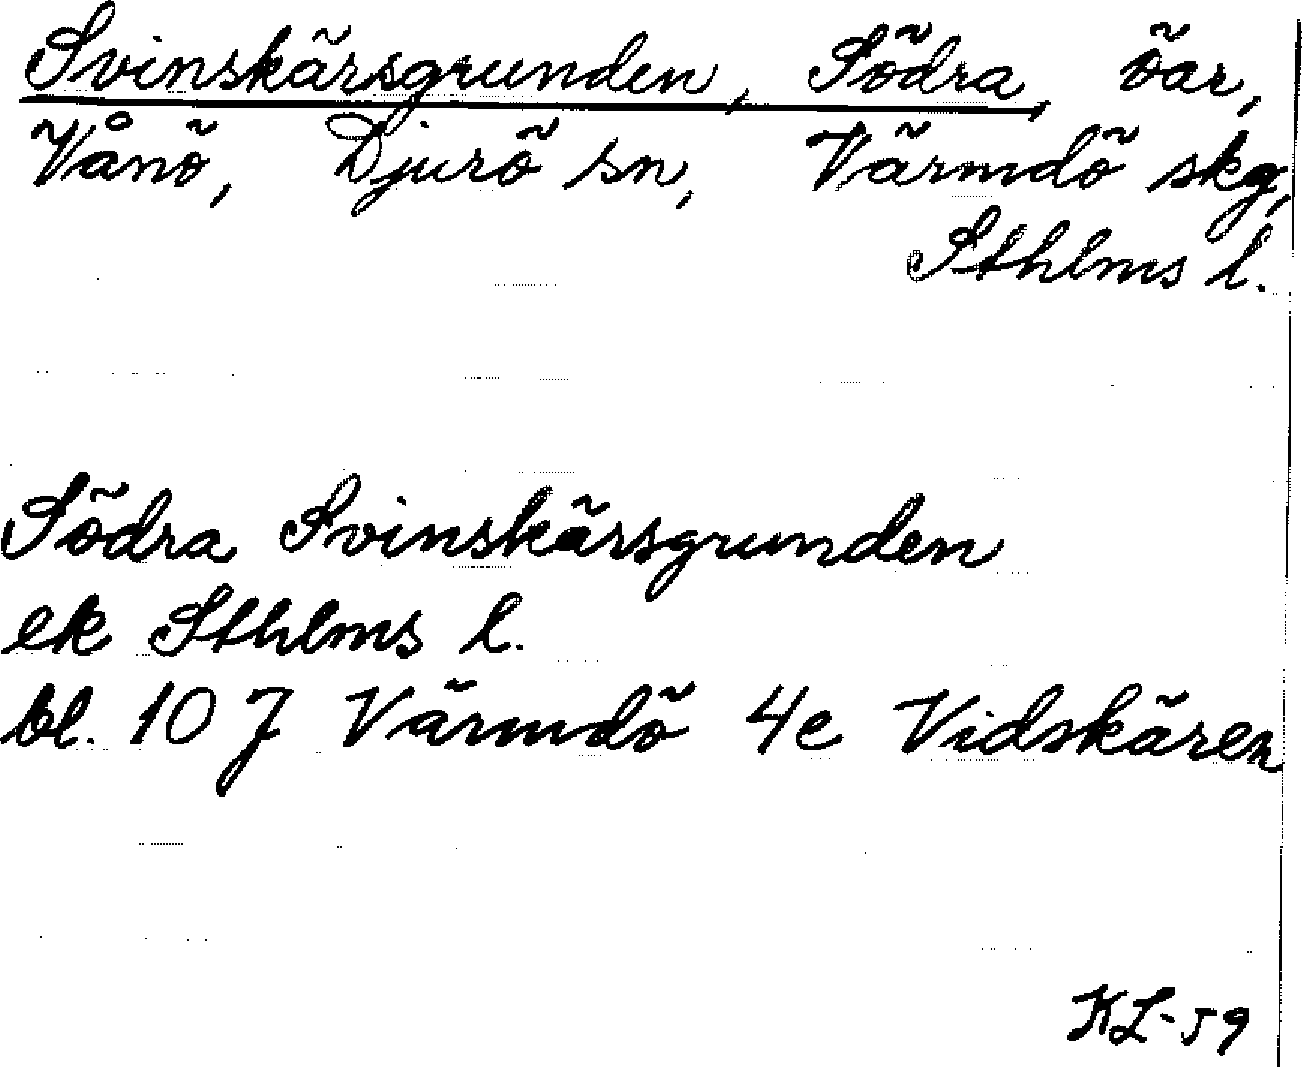 Svinskärsgrunden, Södra, öar,
Vånö, Djurö sn, Värmdö skg,
Sthlms l.
Södra Svinskärsgrunden
ek Sthlms l.
bl. 107 Värmdö 4e Vidskären
KL-59